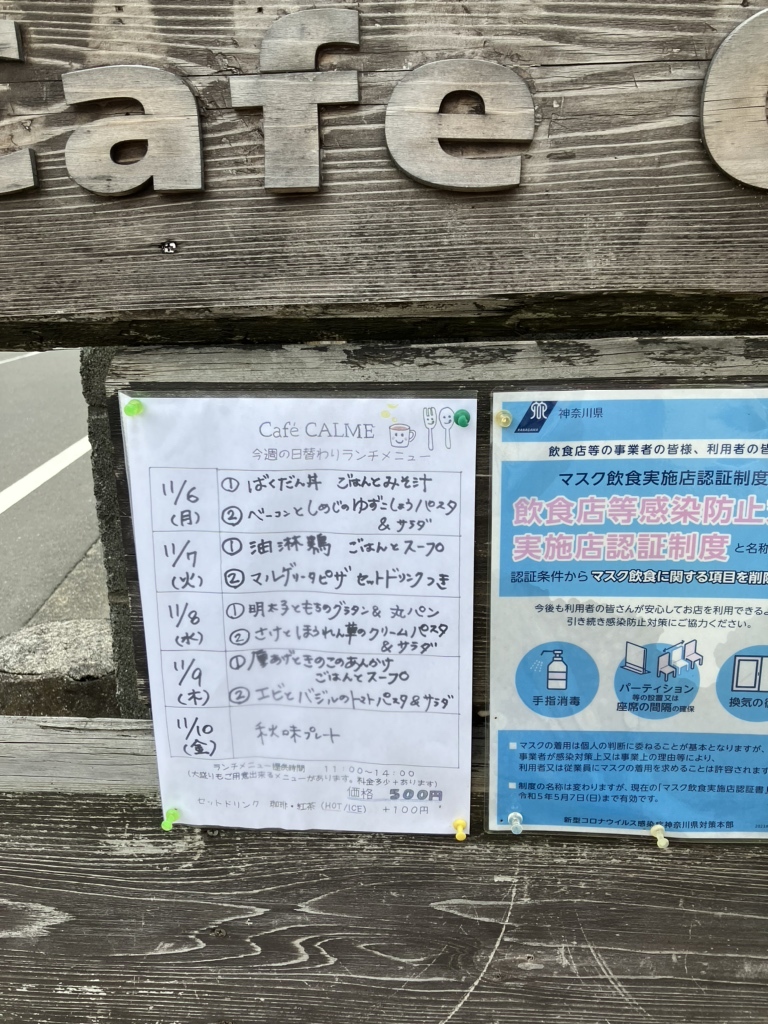 Cafe C
Café CALME
今週の日替わりランチメニュー
11/6 (月)
① ばくだん丼 ごはんとみそ汁
② ベーコンとしめじのゆずこしょうパスタ & サラダ
11/7 (火)
① 油淋鶏 ごはんとスープ
② マルゲリータピザ セットドリンクつき
11/8 (水)
① 明太子ともちのグラタン & 丸パン
② さけとほうれん草のクリームパスタ & サラダ
11/9 (木)
① 厚あげときのこのあんかけ
ごはんとスープ
② エビとバジルのトマトパスタ & サラダ
11/10 (金)
秋味プレート
ランチメニュー提供時間 11:00~14:00
(大盛りもご用意出来るメニューがあります。料金多少+あります)
価格 500円
セットドリンク 珈琲・紅茶 (HOT/ICE) +100円
神奈川県
飲食店等の事業者の皆様、利用者の皆
マスク飲食実施店認証制度
飲食店等感染防止
実施店認証制度 と名称
認証条件からマスク飲食に関する項目を削除
今後も利用者の皆さんが安心してお店を利用できるよ
引き続き感染防止対策にご協力ください。
手指消毒
パーティション
等の設置又は
座席の間隔の確保
換気の
マスクの着用は個人の判断に委ねることが基本となりますが、
事業者が感染対策上又は事業上の理由等により、
利用者又は従業員にマスクの着用を求めることは許容されます
制度の名称は変わりますが、現在の「マスク飲食実施店認証書」
令和5年5月7日(日)まで有効です。
新型コロナウイルス感染症神奈川県対策本部